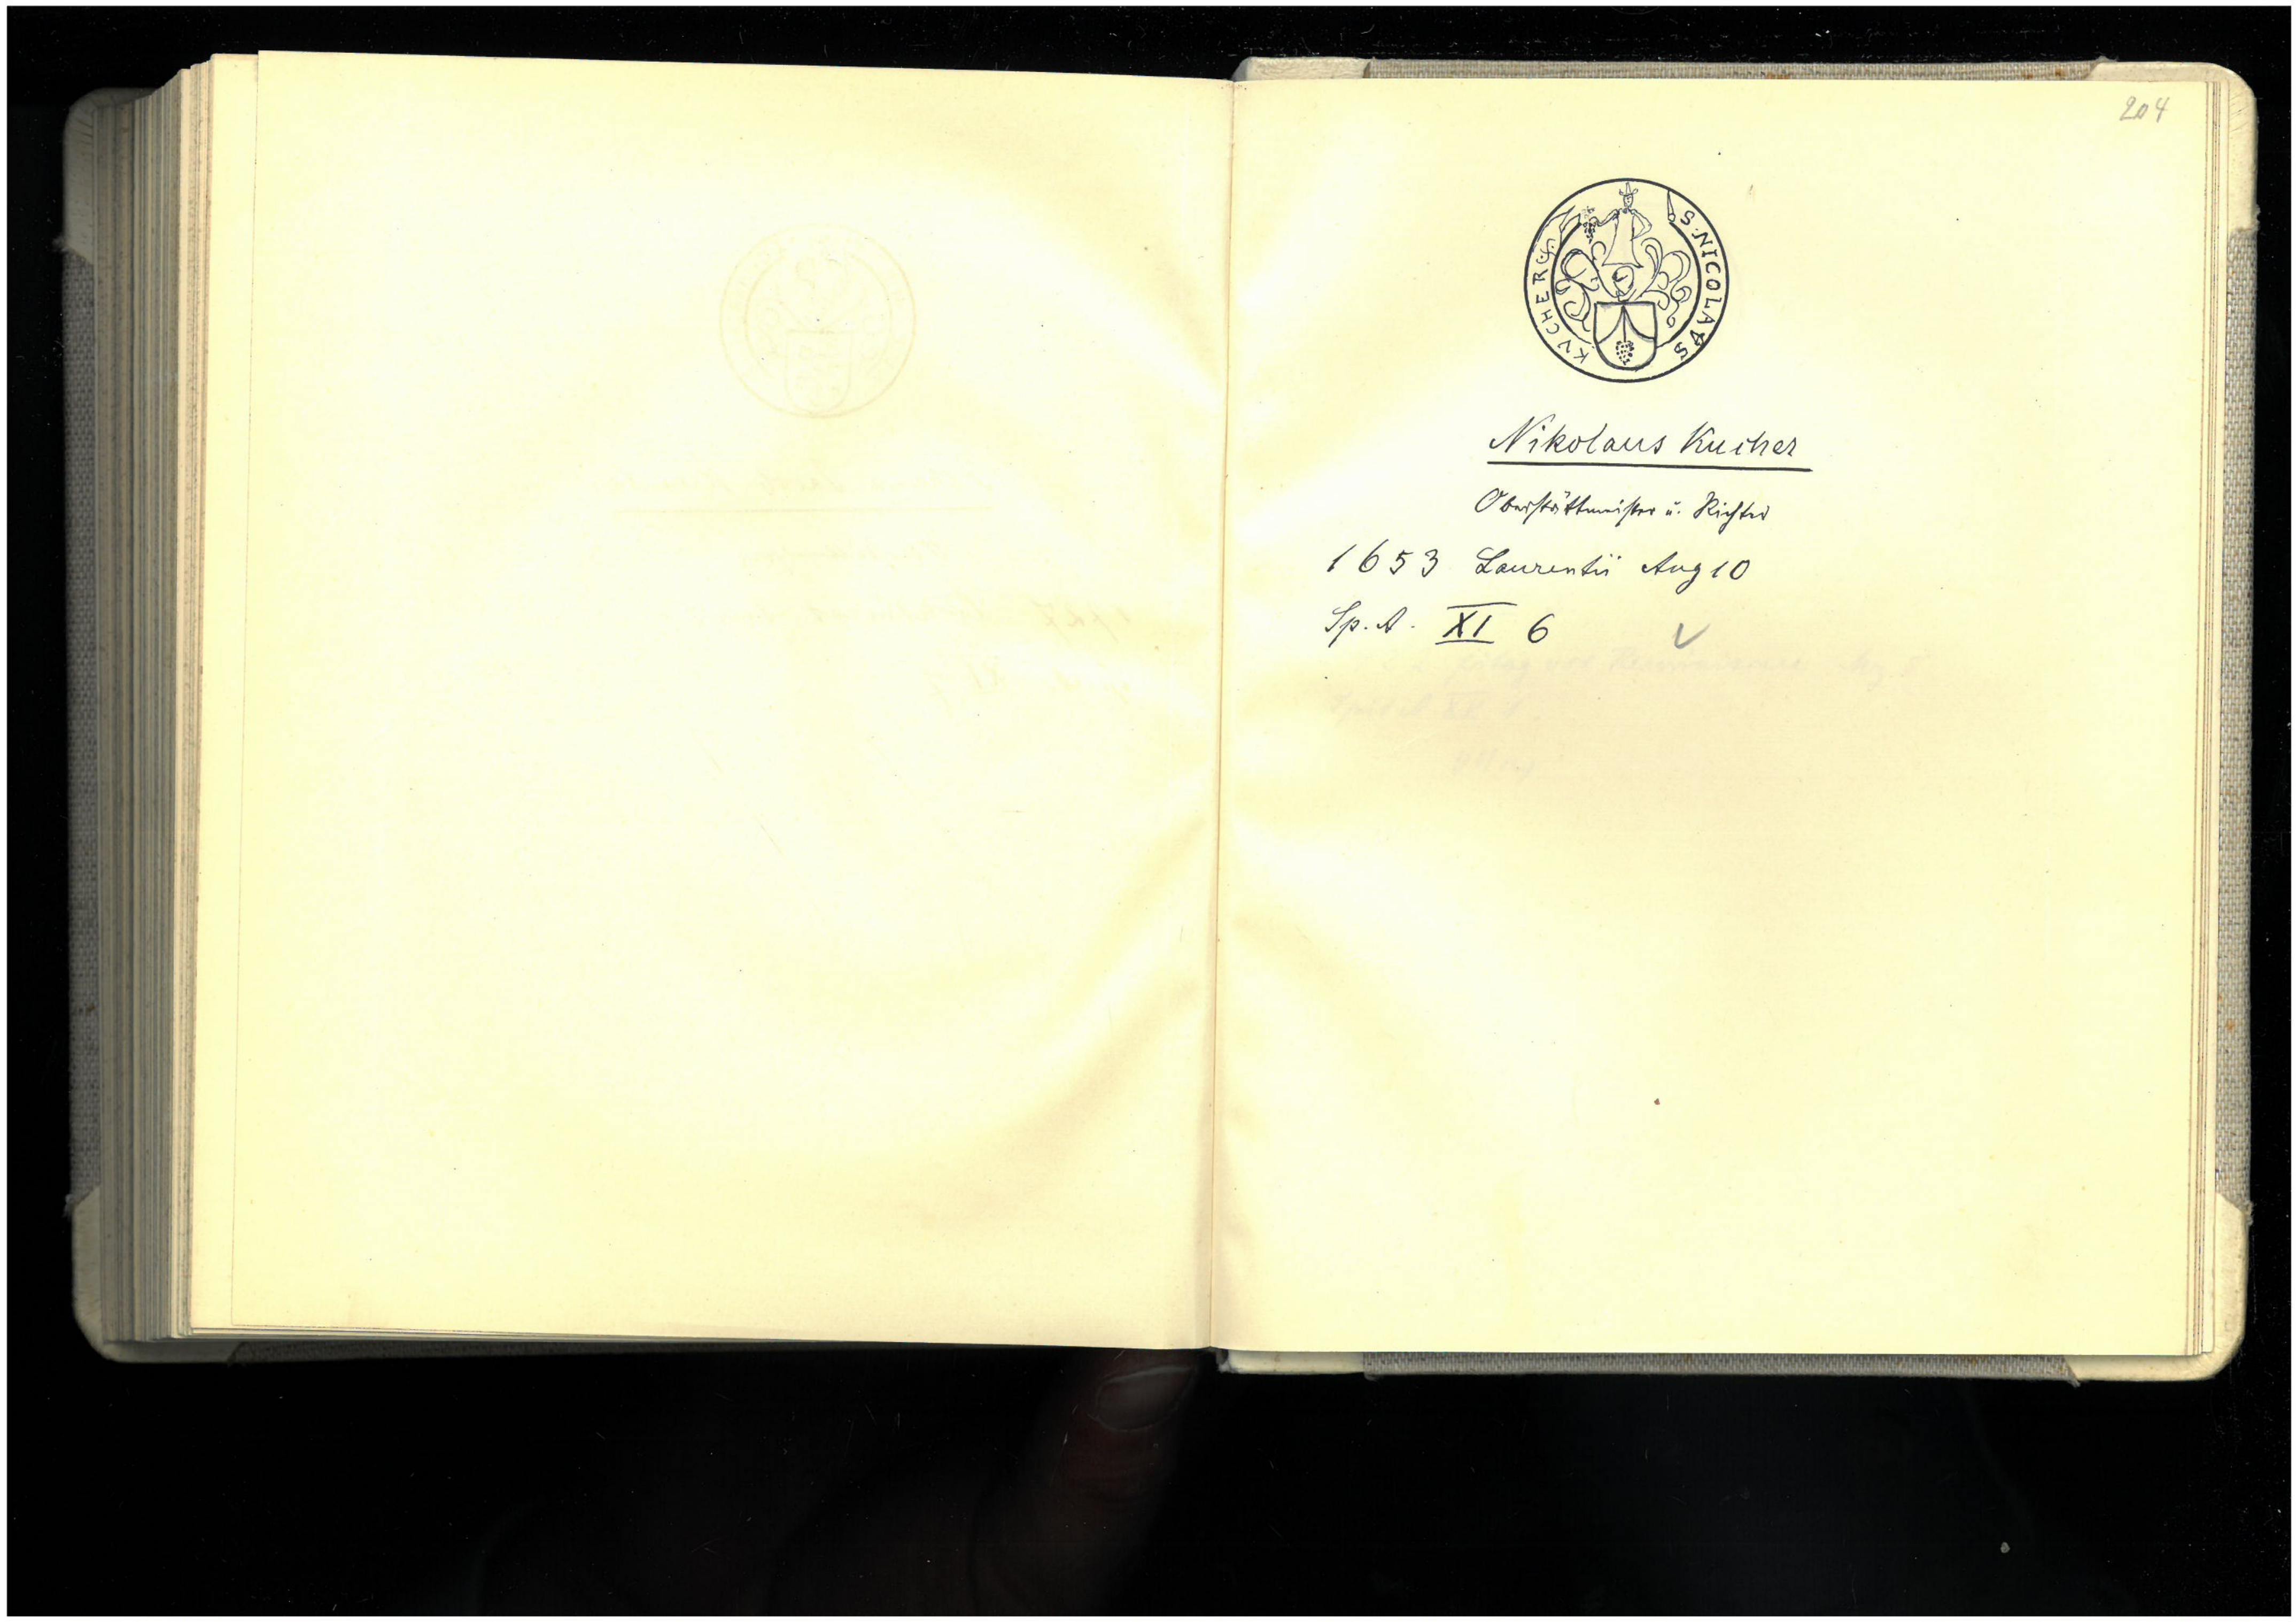 204
S. NICOLAVS
KVCHER
Nikolaus Kucher
Oberstättmeister u. Richter
1653 Laurentii Aug 10
Sp. A. XI 6